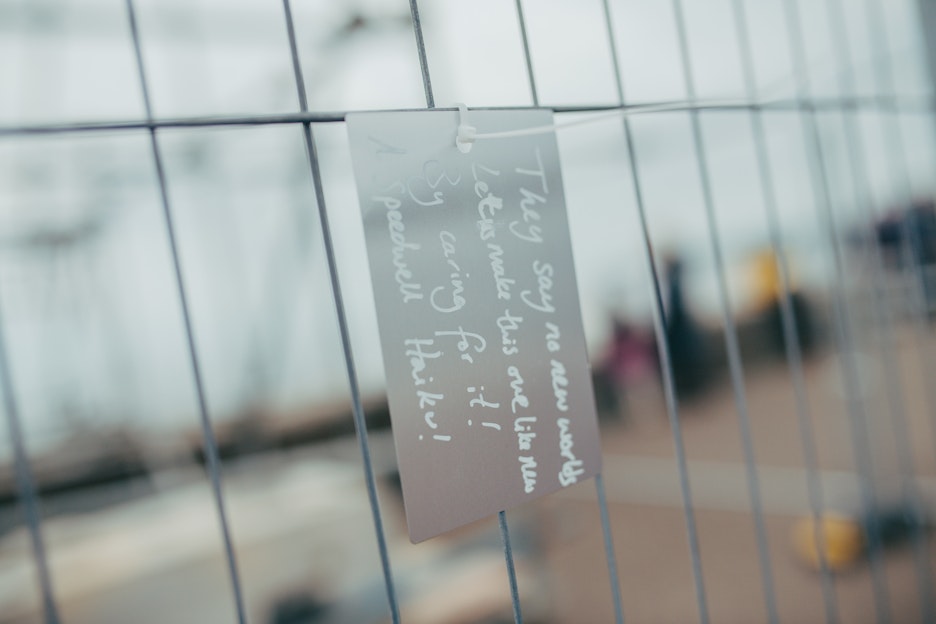 They say no new worlds
Let us make this one like new
By caring for it!
A Speedwell Haiku!